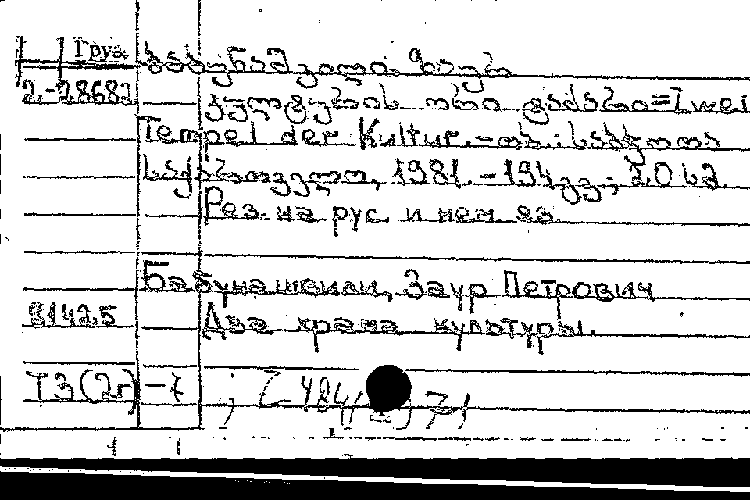 Груз.
ბაბუნაშვილი ზაურ
2.-28682
კულტურის ორი ტაძარი=Zwei
Tempel der Kultur.-თბ.: საბჭოთა
საქართველო, 1981. -194გვ.; 20 სმ.
Рез. на рус. и нем. яз.
Бабунашвили, Заур Петрович
8142.5
Два храма культуры.
Т3(2Г)-7